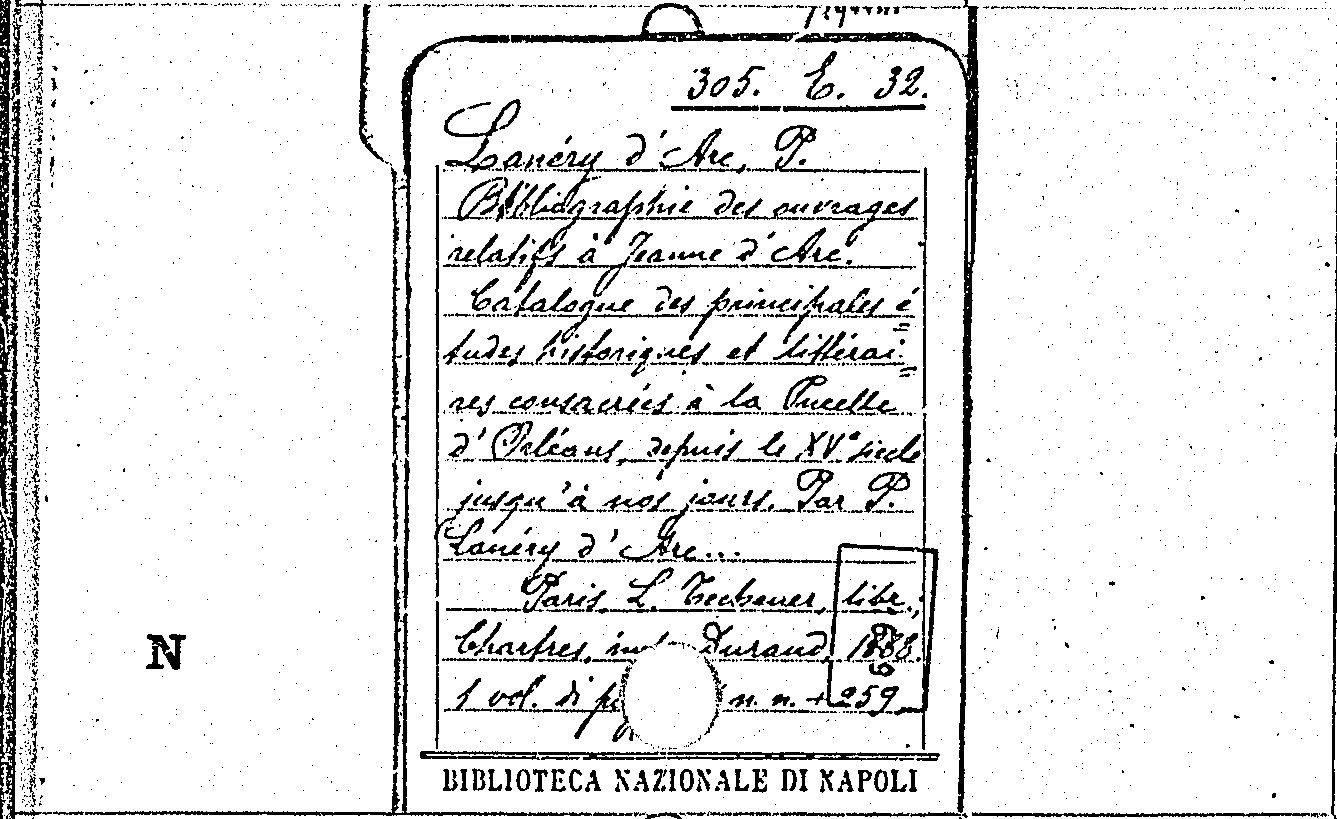 305. E. 32.
Lanéry d'Arc, P.
Bibliographie des ouvrages
relatifs à Jeanne d'Arc.
Catalogue des principales é=
tudes historiques et littérai=
res consacrées à la Pucelle
d'Orléans, depuis le XVe siècle
jusqu'à nos jours. Par P.
Lanéry d'Arc...
Paris, L. Techener, libr.;
Chartres, Durand, 1888.
1 vol. di n. n. + 259
N
BIBLIOTECA NAZIONALE DI NAPOLI